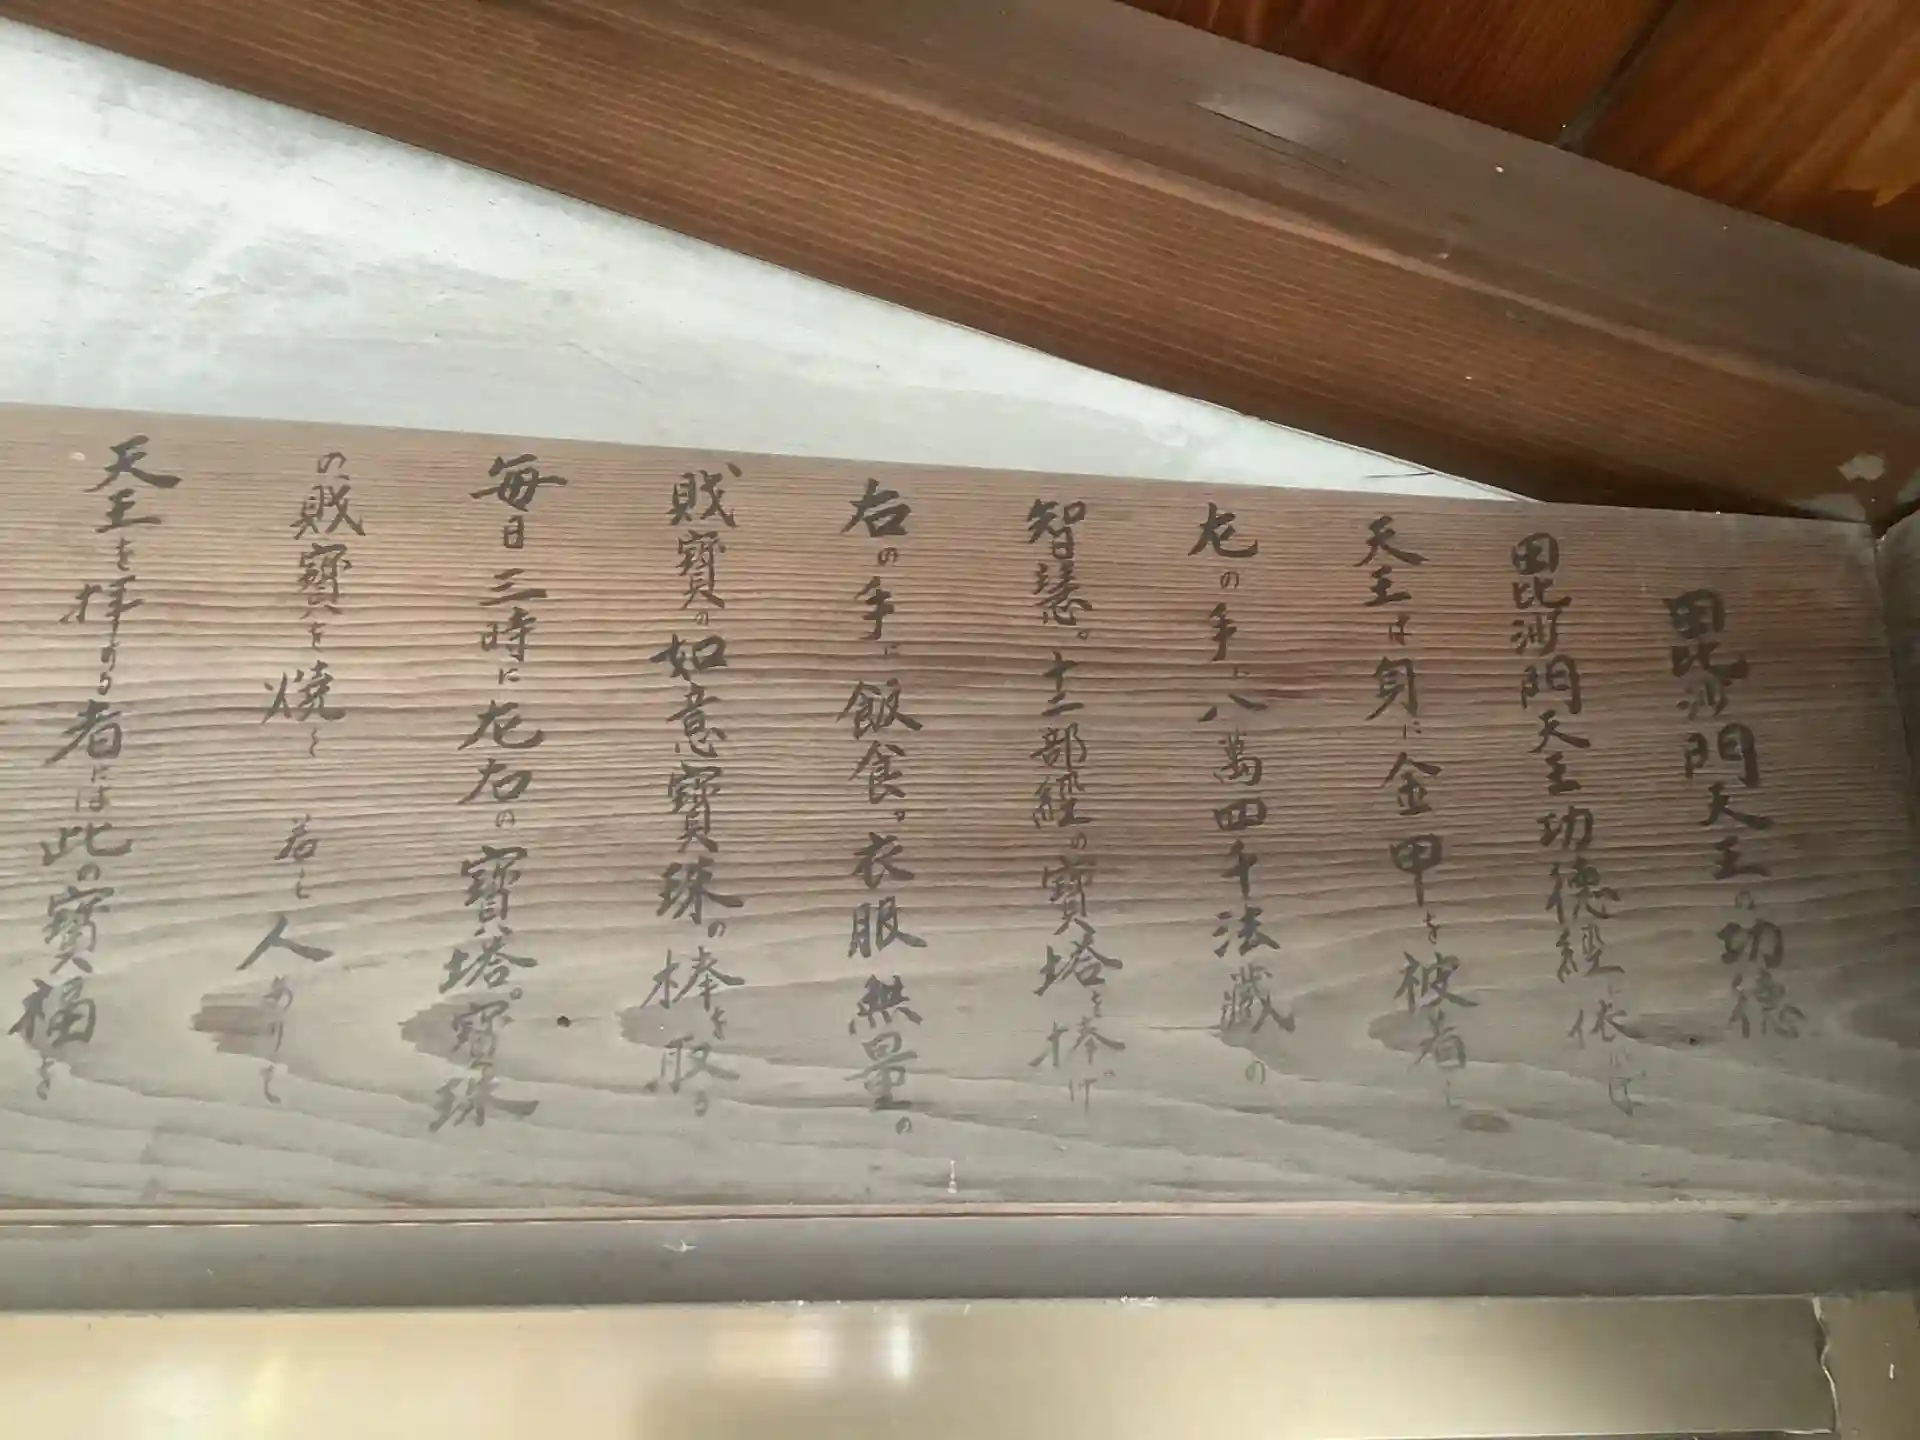 毘沙門天王の功徳
毘沙門天王功徳經に依れば
天王は身に金甲を被着し
左の手に八萬四千法藏の
智慧。十二部經の寶塔を捧げ
右の手に飯食。衣服無量の
財寶の如意寶珠の棒を取る
毎日三時に左右の寶塔。寶珠
の財寶を焼く 若し人ありて
天王を拝める者には此の寶福を